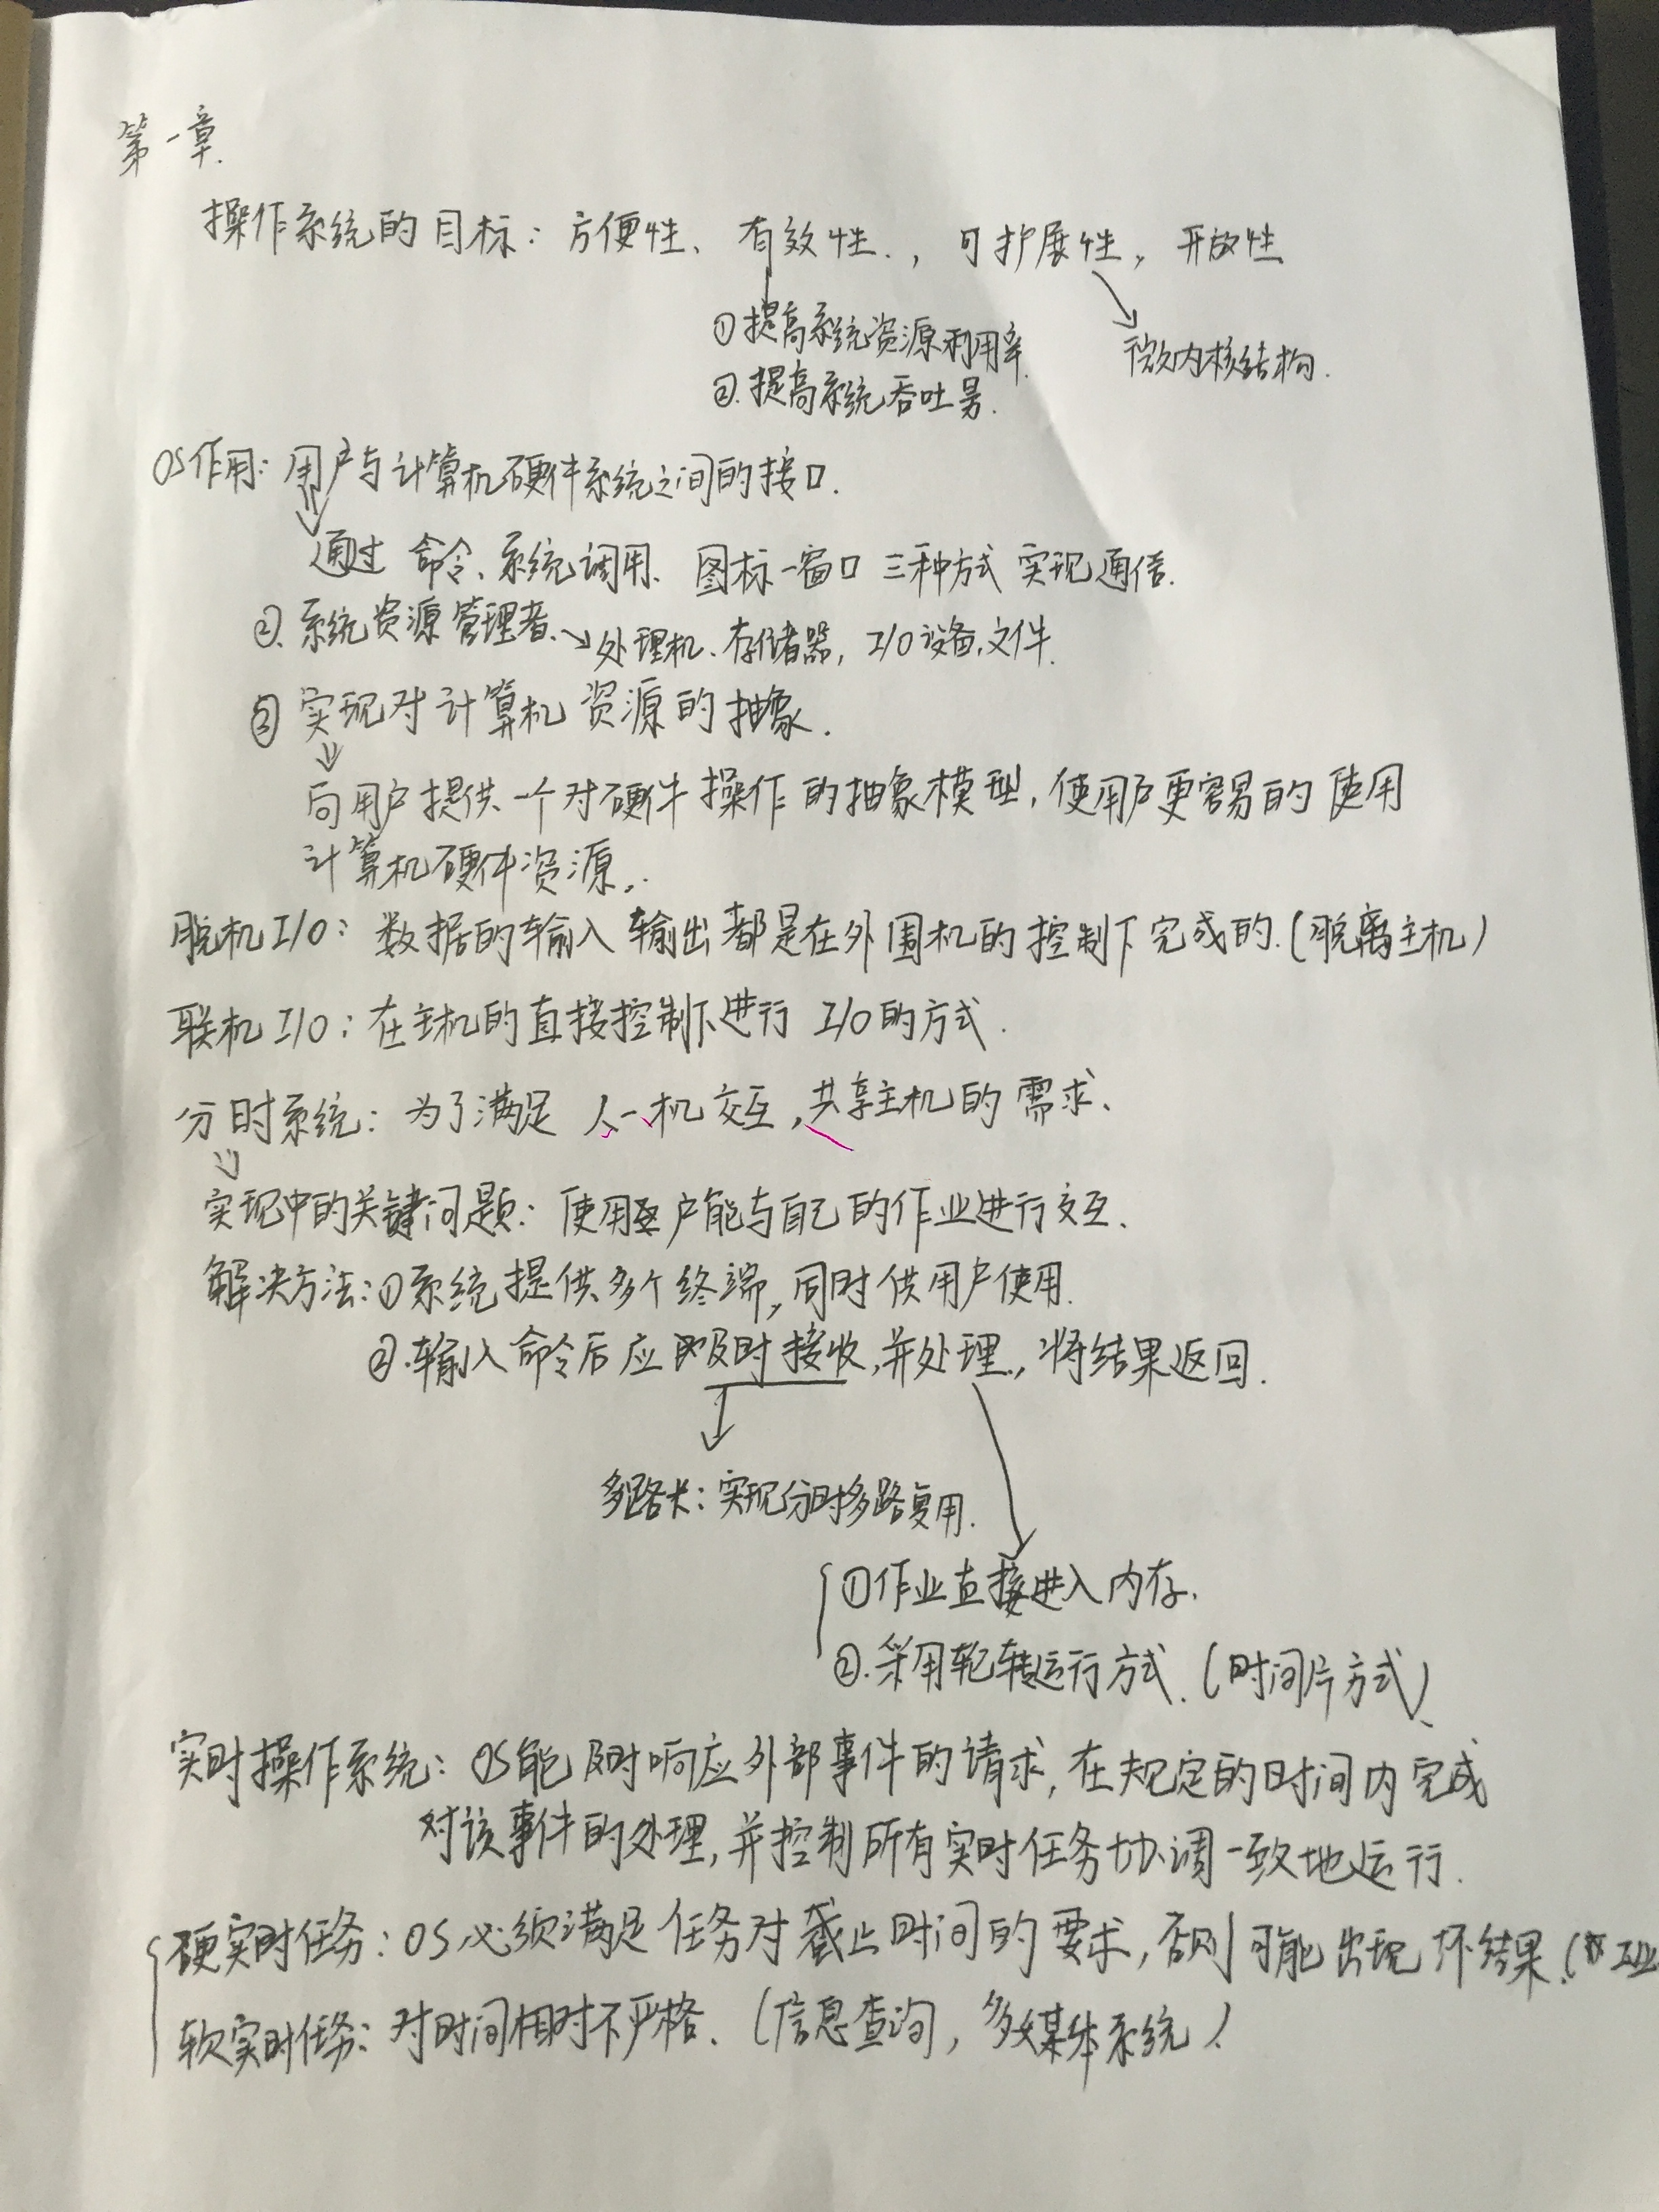 第一章.
操作系统的目标：方便性、有效性.，可扩展性，开放性
①提高系统资源利用率.
微内核结构.
②.提高系统吞吐量.
OS作用：用户与计算机硬件系统之间的接口.
通过 命令、系统调用、图标-窗口 三种方式 实现通信.
②.系统资源管理者.→处理机、存储器，I/O设备，文件.
③ 实现对计算机资源的抽象.
向用户提供一个对硬件操作的抽象模型，使用户更容易的使用
计算机硬件资源..
脱机I/O：数据的输入输出都是在外围机的控制下完成的.(脱离主机)
联机I/O：在主机的直接控制下进行 I/O的方式.
分时系统：为了满足 人一机交互，共享主机的需求、
实现中的关键问题：使用户能与自己的作业进行交互.
解决方法：①系统提供多个终端，同时供用户使用.
②.输入命令后应及时接收，并处理.，将结果返回.
多路卡：实现分时多路复用.
①作业直接进入内存.
②.采用轮转运行方式.(时间片方式)
实时操作系统：OS能及时响应外部事件的请求，在规定的时间内完成
对该事件的处理，并控制所有实时任务协调一致地运行.
硬实时任务：OS必须满足任务对截止时间的要求，否则可能出现坏结果.(工业
软实时任务：对时间相对不严格.(信息查询，多媒体系统)